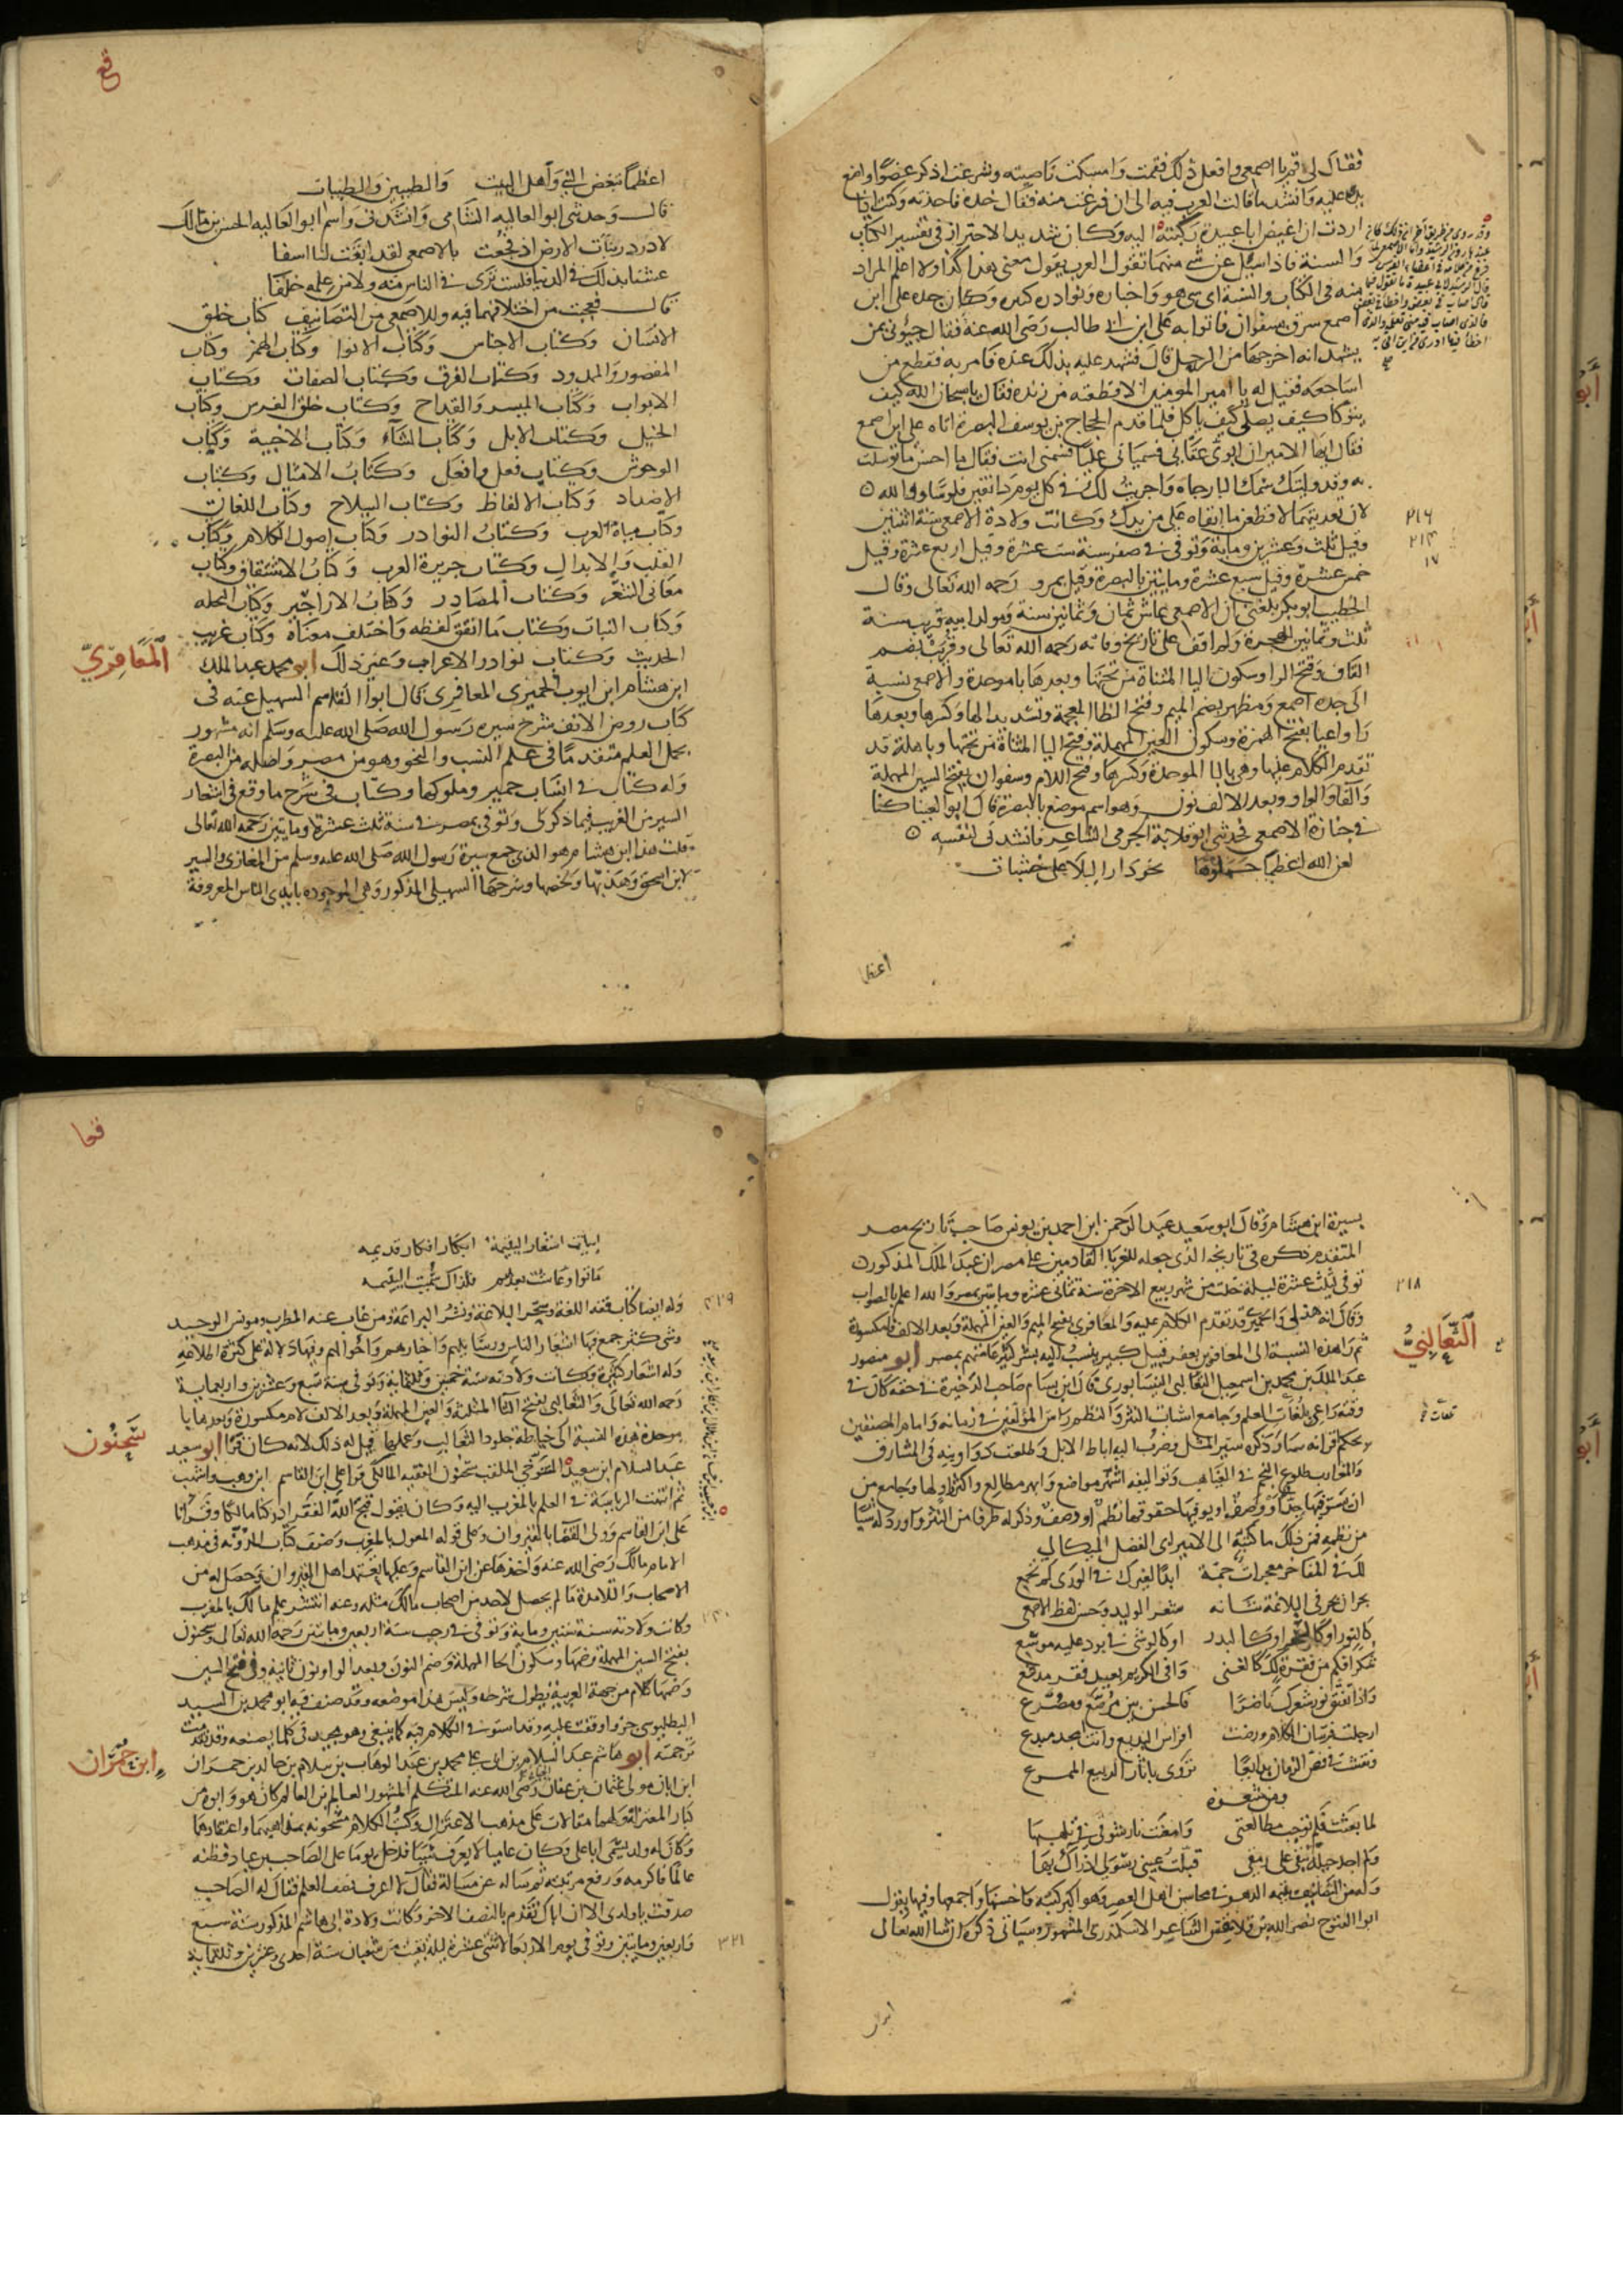 فقال لي قم يا اصمعي وافعل ذلك فقمت وامسكت ناصيته وشرعت اذكر عضوا واضع
يدي عليه وانشد ما قالت العرب فيه الى ان فرغت منه فقال خذه فاخذته وكنت اذا
اردت ان اغيض ابا عبيدة ركبته اليه وكان شديد الاحتراز في تفسير الكتاب
والسنة فاذا سيل عن شي منهما تقول العرب يقول معنى هذا كذا ولا اعلم المراد
منه في الكتاب والسنة اي شي هو واخباره ونوادره كثيره وكان جده علي ابن
اصمع سرق بسفوان فاتوا به علي ابن ابي طالب رضي الله عنه فقال جيوني بمن
يشهد انه اخرجها من الرحل قال فشهد عليه بذلك عنده فامر به فقطع من
اشاجعه فقيل له يا امير المومنين الا قطعته من زنده فقال يا سبحان الله كيف
يتوكا كيف يصلي كيف ياكل فلما قدم الحجاج بن يوسف البصرة اتاه علي ابن اصمع
فقال ايها الامير ان ابوي عقاني فسمياني عليا فسمني انت فقال ما احسن ما توسلت
به وقد وليتك سمك البارجاه واجريت لك في كل يوم دانقين فلوسا ووالله
لان تعديتهما لاقطعن ما ابقاه علي من يدك وكانت ولادة الاصمعي سنة اثنتين
وقيل ثلث وعشرين وماية وتوفي في صفر سنة ست عشرة وقيل اربع عشرة وقيل
خمس عشرة وقيل سبع عشرة وماتين بالبصرة وقيل بمرو رحمه الله تعالى وقال
الخطيب ابو بكر بلغني ان الاصمعي عاش ثمان وثمانين سنة ومولد ابيه قريب سنة
ثلث وثمانين للهجرة ولم اقف على تاريخ وفاته رحمه الله تعالى وقريب بضم
القاف وفتح الرا وسكون اليا المثناة من تحتها وبعدها با موحدة والاصمعي نسبة
الى جده اصمع ومظهر بضم الميم وفتح الظا المعجمة وتشديد الها وكسرها وبعدها
را واعيا بفتح الهمزة وسكون العين المهملة وفتح اليا المثناة من تحتها وباهلة قد
تقدم الكلام عليها وهي بالبا الموحدة وكسر الها وفتح اللام وسفوان بفتح السين المهملة
والفا والواو وبعد الالف نون وهو اسم موضع بالبصرة قال ابو العينا كنا
في جنازة الاصمعي فحدثني ابو قلابة الجرمي الشاعر فانشدني لنفسه
لعن الله اعظما حملوها نحو دار البلا على خشبات
٢١٦
٢١٤
١٧
اعظما
قع
اعظما تبغض النبي واهل البيت والطيبين والطيبات
قال وحدثني ابو العاليه الشامي وانشدني واسم ابو العاليه الحسن بن مالك
لا در در بنات الارض اذ فجعت بالاصمعي لقد ابقت لنا اسفا
عش ما بدا لك في الدنيا فلست ترى في الناس منه ولا من علمه خلفا
قال فعجبت من اختلافهما فيه وللاصمعي من التصانيف كتاب خلق
الانسان وكتاب الاجناس وكتاب الانوا وكتاب الهمز وكتاب
المقصور والممدود وكتاب الفرق وكتاب الصفات وكتاب
الابواب وكتاب الميسر والقداح وكتاب خلق الفرس وكتاب
الخيل وكتاب الابل وكتاب الشاء وكتاب الاخبية وكتاب
الوحوش وكتاب فعل وافعل وكتاب الامثال وكتاب
الاضداد وكتاب الالفاظ وكتاب السلاح وكتاب اللغات
وكتاب مياه العرب وكتاب النوادر وكتاب اصول الكلام وكتاب
القلب والابدال وكتاب جزيرة العرب وكتاب الاشتقاق وكتاب
معاني الشعر وكتاب المصادر وكتاب الاراجيز وكتاب النخله
وكتاب النبات وكتاب ما اتفق لفظه واختلف معناه وكتاب غريب
الحديث وكتاب نوادر الاعراب وغير ذلك ابو محمد عبد الملك
المعافري
ابن هشام ابن ايوب الحميري المعافري قال ابوا القاسم السهيلي عنه في
كتاب روض الانف شرح سيره رسول الله صلى الله عليه وسلم انه مشهور
بحمل العلم متقدما في علم النسب والنحو وهو من مصر واصله من البصرة
وله كتاب في انساب حمير وملوكها وكتاب في شرح ما وقع في اشعار
السير من الغريب فيما ذكر لي وتوفي بمصر في سنة ثلث عشرة وماتين رحمه الله تعالى
قلت هذا ابن هشام هو الذي جمع سيرة رسول الله صلى الله عليه وسلم من المغازي والسير
لابن اسحق وهذبها ولخصها وشرحها السهيلي المذكور وهي الموجوده بايدي الناس المعروفة
بسيرة ابن هشام وقال ابو سعيد عبد الرحمن ابن احمد بن يونس صاحب تاريخ مصر
المتقدم ذكره في تاريخه الذي جعله للغربا القادمين على مصر ان عبد الملك المذكور
توفي لثلث عشرة ليلة خلت من شهر ربيع الاخر سنة ثماني عشره وماتين بمصر والله اعلم بالصواب
٢١٨
وقال انه ذهلي والحميري قد تقدم الكلام عليه والمعافري بفتح الميم والعين المهملة وبعد الالف فا مكسورة
ثم را هذه النسبة الى المعافر بن يعفر قبيل كبير ينسب اليه بشر كثير عامتهم بمصر ابو منصور
الثعالبي
عبد الملك بن محمد بن اسمعيل الثعالبي النيسابوري قال ابن بسام صاحب الذخيرة في حقه كان في
وقته راعي تلعات العلم وجامع اشتات النثر والنظم راس المؤلفين في زمانه وامام المصنفين
بحكم قرانه سار ذكره سير المثل وضربت اليه اباط الابل وطلعت دواوينه في المشارق
والمغارب طلوع النجم في الغياهب وتواليفه اشهر مواضع وابهر مطالع واكثر راو لها وجامع من
ان يستوفيها حد او وصف او يوفيها حقوقها نظم او وصف وذكر له طرفا من النثر واورد له شيا
من نظمه فمن ذلك ما كتبه الى الامير ابي الفضل الميكالي
لك في المفاخر معجزات جمة ابدا لغيرك في الورى لم تجمع
بحران بحر في البلاغة شانه شعر الوليد وحسن لفظ الاصمعي
كالنور او كالسحر او كالبدر او كالوشي في برد عليه موشع
شكرا فكم من فقرة لك كالغنى وافى الكريم بعيد فقر مدقع
واذا تفتق نور شعرك ناضرا فالحسن بين مرصع ومصرع
ارجلت فرسان الكلام ورضت افراس البديع وانت امجد مبدع
ونقشت في فص الزمان بدايعا تزري باثار الربيع الممرع
ومن شعره
لما بعثت فلم توجب مطالعتي وامعنت نار شوقي في تلهبها
ولم اجد حيلة تبقي على رمقي قبلت عيني رسولي اذ راك بها
وله من التصانيف يتيمه الدهر في محاسن اهل العصر وهو اكبر كتبه واحسنها واجمعها وفيها يقول
ابوا الفتوح نصر الله بن قلاقس الشاعر الاسكندري المشهور وسياتي ذكره ان شا الله تعالى
ابيات
قعا
ابيات اشعار اليتيمه ابكار افكار قديمه
ماتوا وعاشت بعدهم فلذاك سميت اليتيمه
وله ايضا كتاب فقه اللغة وسحر البلاغة ونثر البراعة ومن غاب عنه المطرب ومونس الوحيد
٤٢٩
وشي كثير جمع فيها اشعار الناس ورسايلهم واخبارهم واحوالهم وفيها دلالة على كثرة اطلاعه
وله اشعار كثيرة وكانت ولادته سنة خمسين وثلثماية وتوفي سنة تسع وعشرين واربعماية
رحمه الله تعالى والثعالبي بفتح الثا المثلثة والعين المهملة وبعد الالف لام مكسورة وبعدها با
موحدة هذه النسبة الى خياطة جلود الثعالب وعملها قيل له ذلك لانه كان فرا ابو سعيد
سحنون
عبد السلام ابن سعيد التنوخي الملقب سحنون الفقيه المالكي قرا على ابن القاسم ابن وهب واشهب
ثم انتهت الرياسة في العلم بالمغرب اليه وكان يقول قبح الله الفقر ادركنا مالكا وقرانا
على ابن القاسم وولي القضا بالقيروان وعلى قوله المعول بالمغرب وصنف كتاب المدونه في مذهب
الامام مالك رضي الله عنه واخذها عن ابن القاسم وعليها يعتمد اهل القيروان وحصل له من
الاصحاب والتلامذة ما لم يحصل لاحد من اصحاب مالك مثله وعنه انتشر علم مالك بالمغرب
وكانت ولادته سنة ستين وماية وتوفي في رجب سنة اربعين وماتين رحمه الله تعالى وسحنون
٢٤٠
بفتح السين المهملة وضمها وسكون الحا المهملة وضم النون وبعد الواو نون ثانية وفي فتح السين
وضمها كلام من جهة العربية يطول شرحه وليس هذا موضعه وقد صنف فيه ابو محمد بن السيد
البطليوسي جزوا وقفت عليه وقد استوفى الكلام فيه كما ينبغي وهو مجيد في كلما يصنعه وقد تقدمت
ترجمته ابو هاشم عبد السلام بن ابي علي محمد بن عبد الوهاب بن سلام بن خالد بن حمران
ابن حمران
ابن ابان مولى عثمان بن عفان رضي الله عنه المتكلم المشهور العالم بن العالم كان هو وابوه من
كبار المعتزلة ولهما مقالات على مذهب الاعتزال وكتب الكلام مشحونه بمذاهبهما واعتقادهما
وكان له ولد يسمى ابا علي وكان عاميا لا يعرف شييا فدخل يوما على الصاحب بن عباد فظنه
عالما فاكرمه ورفع مرتبته ثم ساله عن مسالة فقال لا اعرف نصف العلم فقال له الصاحب
صدقت يا ولدي الا ان اباك تقدم بالنصف الاخر وكانت ولادة ابي هاشم المذكور سنة سبع
واربعين وماتين وتوفي يوم الاربعا لاثنتي عشرة ليلة بقيت من شعبان سنة احدى وعشرين وثلثماية
٣٢١